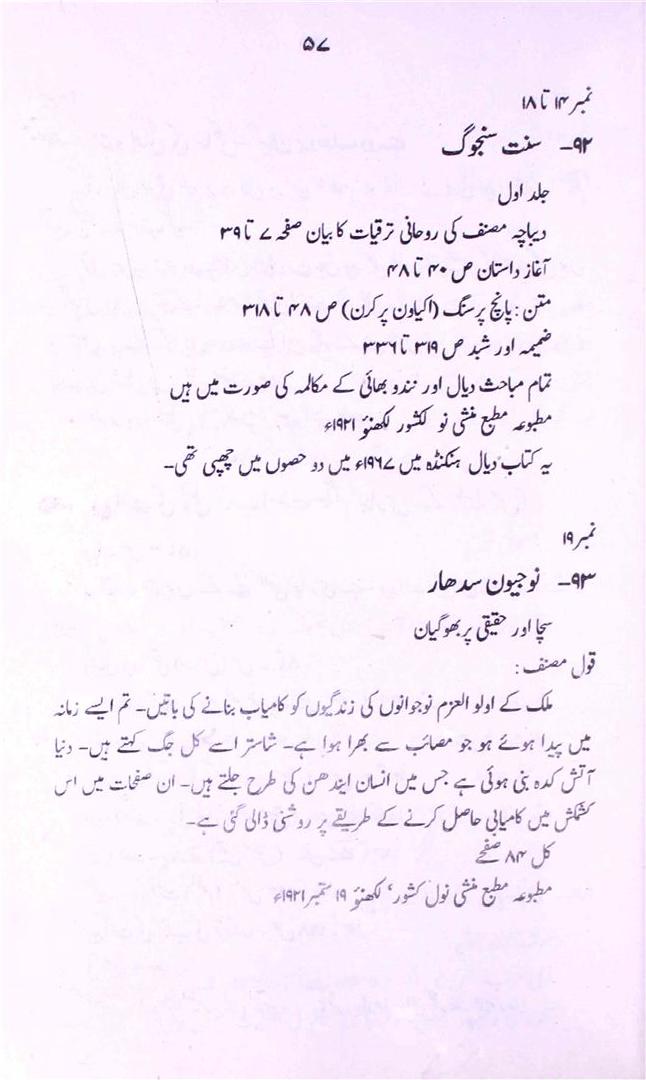 ۵۷
نمبر ۱۴ تا ۱۸
۹۲۔ سنت سنجوگ
جلد اول
دیباچہ مصنف کی روحانی ترقیات کا بیان صفحہ ۷ تا ۳۹
آغاز داستان ص ۴۰ تا ۴۸
متن : پانچ پرسنگ (اکیاون پرکرن) ص ۴۸ تا ۳۱۸
ضمیمہ اور شبد ص ۳۱۹ تا ۳۳۶
تمام مباحث دیال اور نندو بھائی کے مکالمہ کی صورت میں ہیں
مطبوعہ مطبع منشی نو لکشور لکھنؤ ۱۹۲۱ء
یہ کتاب دیال ہنکنڈہ میں ۱۹۶۷ء میں دو حصوں میں چھپی تھی۔
نمبر ۱۹
۹۳۔ نوجیون سدھار
سچا اور حقیقی پربھوگیان
قول مصنف :
ملک کے اولو العزم نوجوانوں کی زندگیوں کو کامیاب بنانے کی باتیں۔ تم ایسے زمانہ
میں پیدا ہوئے ہو جو مصائب سے بھرا ہوا ہے۔ شاستر اسے کل جگ کہتے ہیں۔ دنیا
آتش کدہ بنی ہوئی ہے جس میں انسان ایندھن کی طرح جلتے ہیں۔ ان صفحات میں اس
کشمکش میں کامیابی حاصل کرنے کے طریقے پر روشنی ڈالی گئی ہے۔
کل ۸۴ صفحے
مطبوعہ مطبع منشی نول کشور، لکھنؤ ۱۹ ستمبر ۱۹۲۱ء